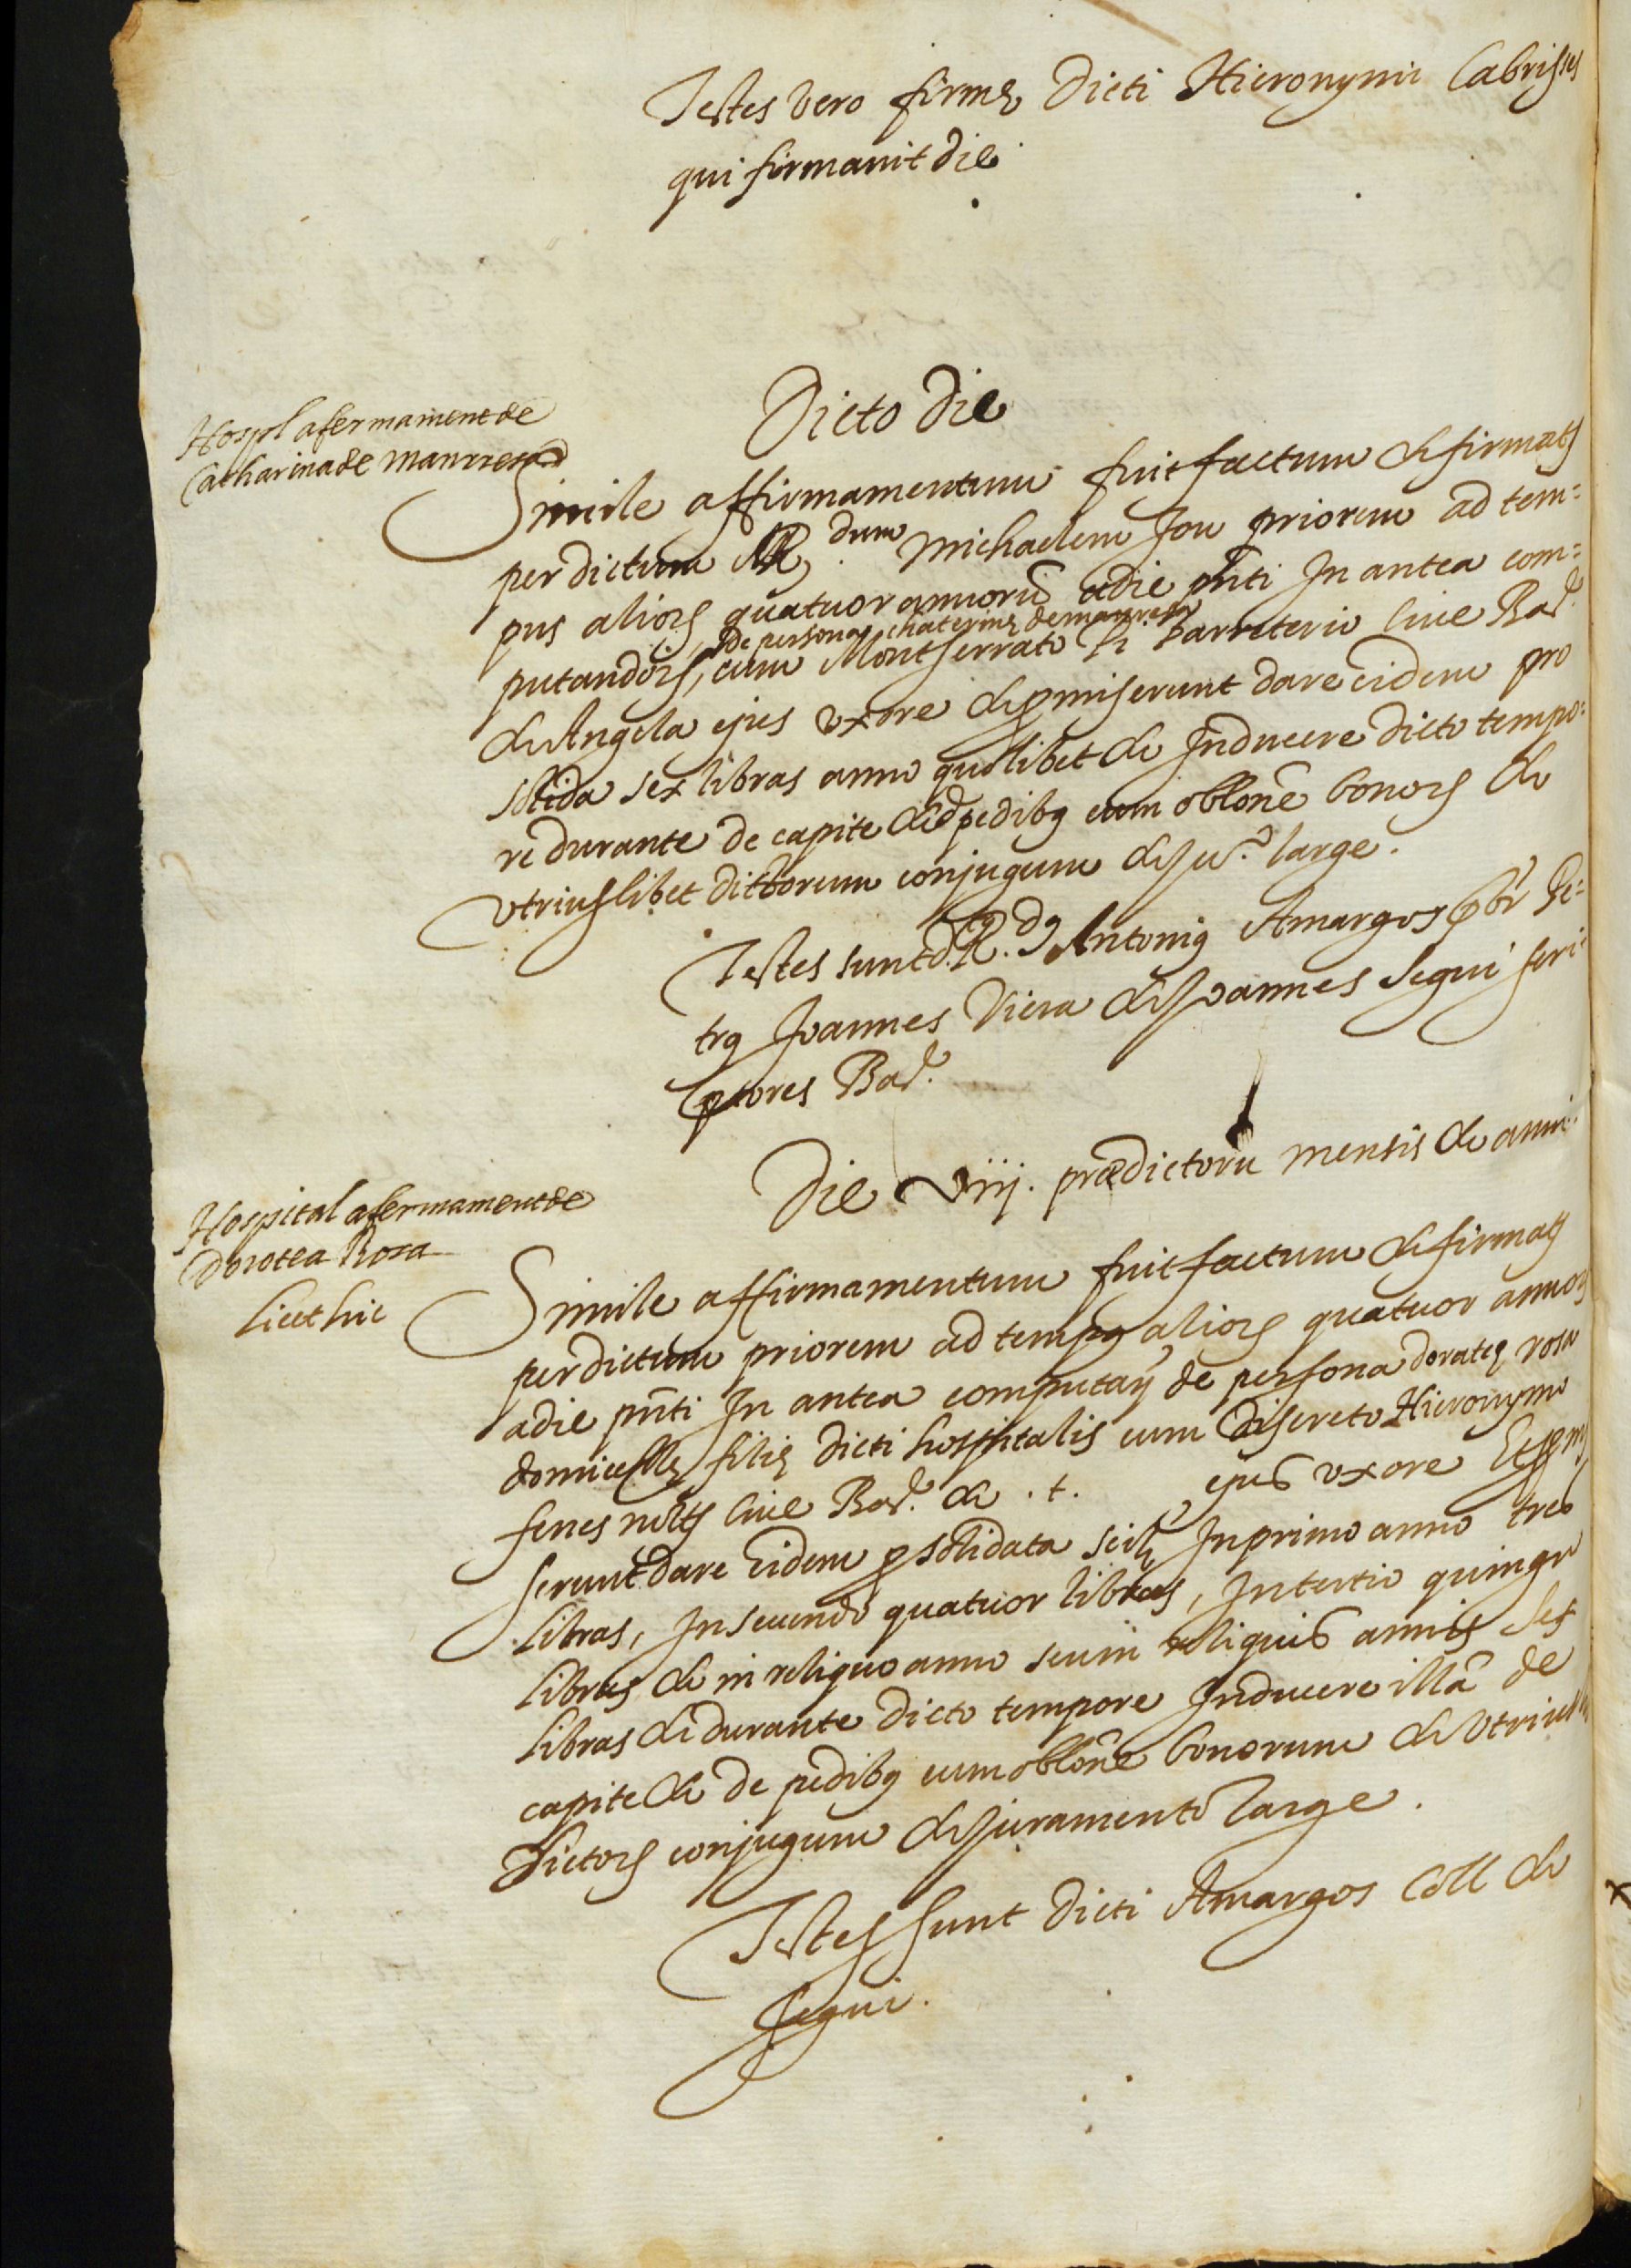 Testes vero firmę dicti Hieronymi Cabrisses
qui firmavit die
Dicto die
Hospl afermament de
Catharina de Manrresa
Simile affirmamentum fuit factum & firmatȷ
per dictum R. dum Michaelem Jou priorem ad tem=
pus alioꝝ quatuor annorū a die pn̄ti In antea com=
putandoꝝ, de persona chaterinę de manresa cum Montserrato barreterio Cive Bar.ᵉ
& Angela ejus uxore & ꝓmiserunt dare eidem pro
solida sex libras anno quolibet & Inducere dicto tempo=
re durante de capite & de pedibꝯ cum oblōne bonoꝝ &
utriuslibet dictorum conjugum & Ju.º large.
Testes sunt d. R.dꝯ Antoniꝯ Amargos pb̄r Pe=
trꝯ Joannes Viera & Joannes Segui scri=
ptores Bar.ᵉ
Die viij. prædictorū mensis & anni.
Hospital afermament de
Dorotea Rosa
licet hic
Simile affirmamentum fuit factum & firmatȷ
per dictum priorem ad tempꝯ alioꝝ quatuor annoꝝ
a die pn̄ti In antea computaȷ de persona doroteę rosa
domicellę filię dicti hospitalis cum discreto Hieronymo
fenes not.ȷ Cive Bar.ᵉ & .t. ejus uxore Et ꝓmi
serunt dare Eidem ꝓ solidata scilꝫ In primo anno tres
libras, In secundo quatuor libras, In tertio quinqꝫ
libras & in reliquo anno seu in reliquis annis sex
libras & durante dicto tempore Inducere illā de
capite & de pedibꝯ cum oblōne bonorum & Utriusli
dictoꝝ conjugum & juramento large.
Testes sunt dicti Amargos Coll &
Segui.